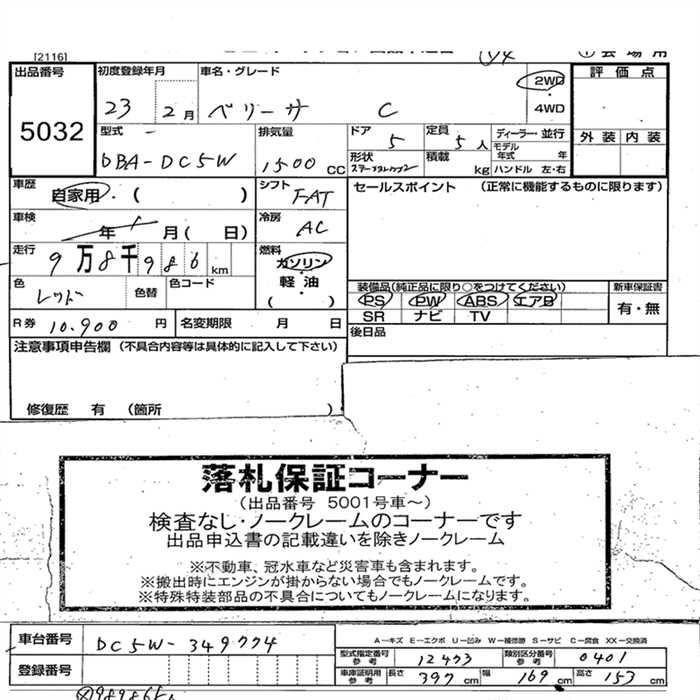 [2116]
出品番号 5032
初度登録年月 23 2月
車名・グレード ベリーサ C
2WD
・
4WD
評価点
外装 内装
型式 DBA-DC5W
排気量 1500 CC
ドア 5
定員 5人
ディーラー・並行
モデル年式 年
ハンドル 左・右
形状
積載 kg
車歴 自家用・( )
シフト FAT
セールスポイント (正常に機能するものに限ります)
車検 年 月( 日)
冷房 AC
走行 9万8千986km
燃料 ガソリン
軽油
( )
色 レッド
色替
色コード
装備品(純正品に限り○をつけてください)
PS PW ABS エアB
SR ナビ TV
新車保証書
有・無
R券 10,900円
名変期限 月 日
後日品
注意事項申告欄 (不具合内容等は具体的に記入して下さい)
修復歴 有 (箇所 )
落札保証コーナー
(出品番号 5001号車~)
検査なし・ノークレームのコーナーです
出品申込書の記載違いを除きノークレーム
※不動車、冠水車など災害車も含まれます。
※搬出時にエンジンが掛からない場合でもノークレームです。
※特殊特装部品の不具合についてもノークレームになります。
車台番号 DC5W-349774
A－キズ E－エクボ U－凹み W－補修跡 S－サビ C－腐食 XX－交換済
型式指定番号 参考 12473
類別区分番号 参考 0401
登録番号
車庫証明用 参考 長さ 397cm 幅 169cm 高さ 153cm